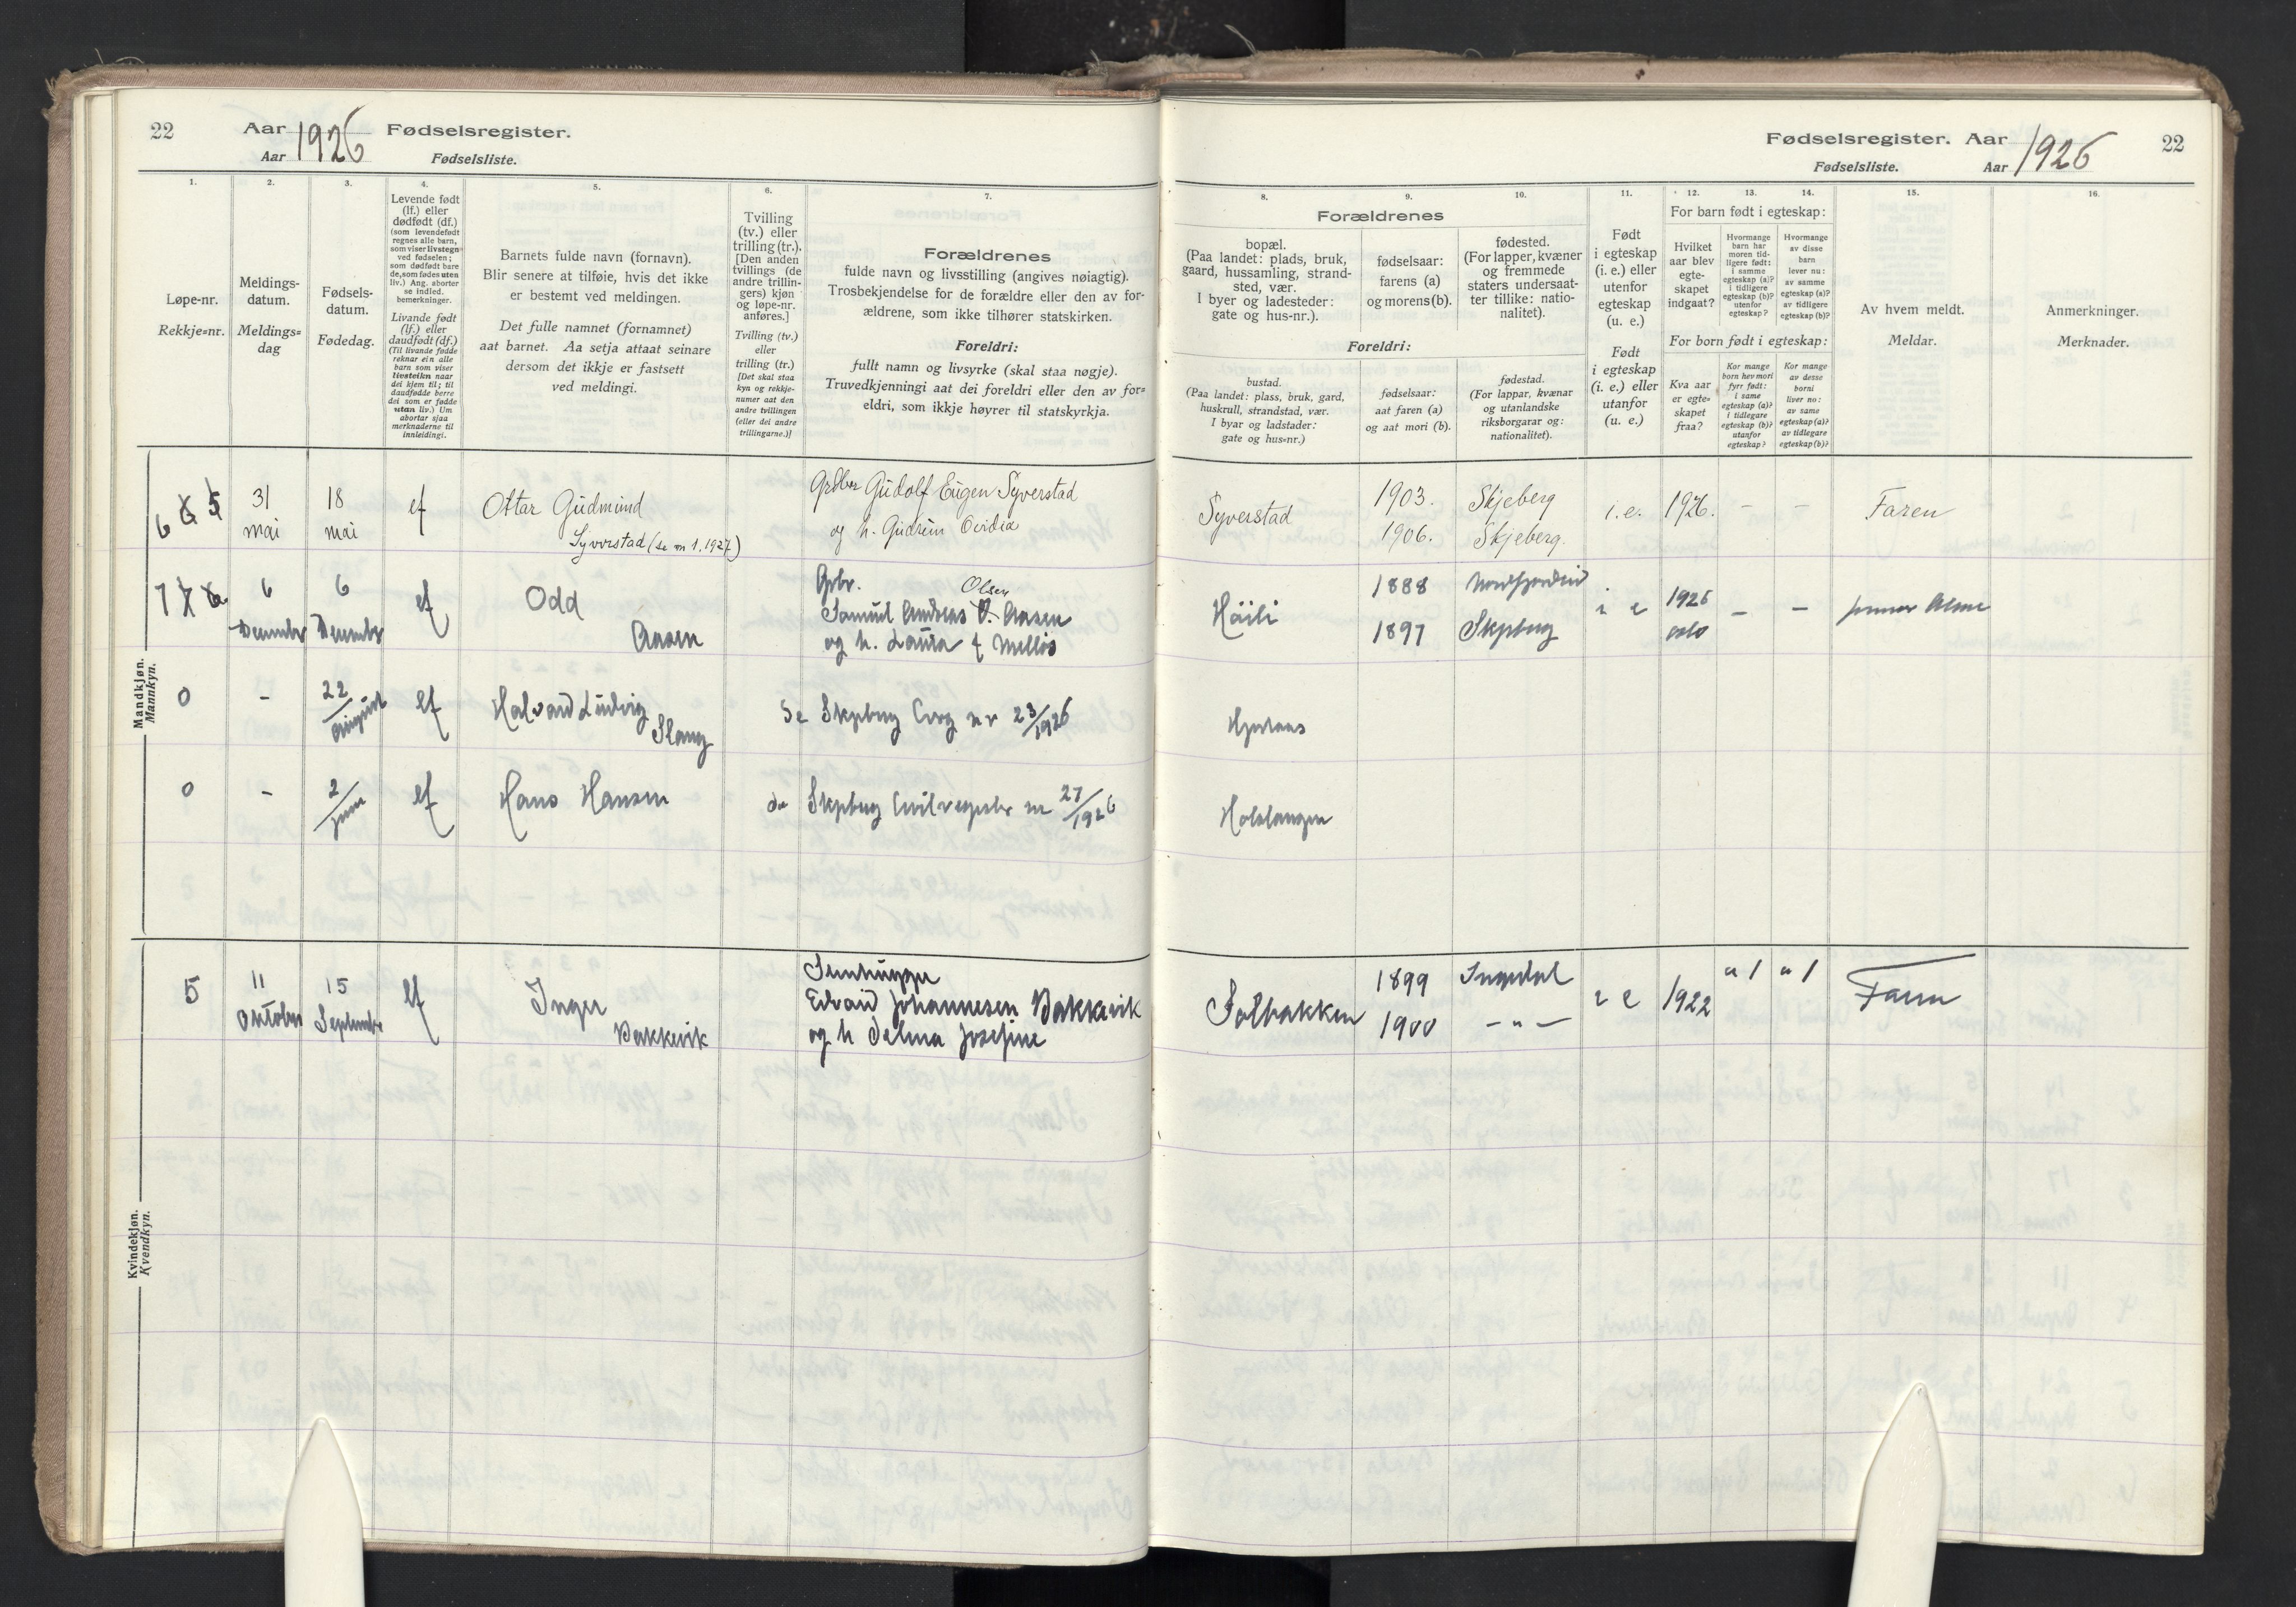 22
Aar 1926 Fødselsregister.
Aar Fødselsliste.
1.
2.
3.
4.
5.
6.
7.
Løpe-nr.
Rekkje=nr.
Meldings-
datum.
Meldings=
dag
Fødsels-
datum.
Fødedag.
Levende født
(lf.) eller
dødfødt (df.)
(som levendefødt
regnes alle barn,
som viser livstegn
ved fødselen;
som dødfødt bare
de, som fødes uten
liv.) Ang. aborter
se indled.
bemerkninger.
Livande født
(lf.) eller
daudfødt (df.)
(Til livande fødde
reknar ein alle
barn som viser
livsteikn naar
dei kjem til; til
daudfødde berre
dei som er fødde
utan liv.) Um
abortar sjaa
merknaderne til
innleidingi.
Barnets fulde navn (fornavn).
Blir senere at tilføie, hvis det ikke
er bestemt ved meldingen.
Det fulle namnet (fornamnet)
aat barnet. Aa setja attaat seinare
dersom det ikkje er fastsett
ved meldingi.
Tvilling
(tv.) eller
trilling (tr.).
[Den anden
tvillings (de
andre trillin-
gers) kjøn
og løpe-nr.
anføres.]
Tvilling (tv.)
eller
trilling (tr.)
[Det skal staa
kyn og rekkje-
numer aat den
andre tvillingen
(eller dei andre
trillingarne.)]
Forældrenes
fulde navn og livsstilling (angives nøiagtig).
Trosbekjendelse for de forældre eller den av for-
ældrene, som ikke tilhører statskirken.
Foreldri:
fullt namn og livsyrke (skal staa nøgje).
Truvedkjenningi aat dei foreldri eller den av for=
eldri, som ikkje høyrer til statskyrkja.
Mandkjøn.
Mannkyn.
6 6 5
31
mai
18
mai
lf
Ottar Gudmund
Syverstad (se nr 1. 1927)
Grdbr Gudolf Eugen Syverstad
og h. Gudrun Ovidia
7
6
December
6
December
lf
Odd
Aasen
Grbr. Olsen
Samuel Andreas Aasen
og h. Laura f
0
-
22
august
lf
Halvard Ludvig
Slang
Se Skjeberg nr 23/1926
0
-
2
juni
lf
Hans Hansen
do Skjeberg Civilregister nr 27/1926
Kvindekjøn.
Kvendkyn.
5
11
Oktober
15
September
lf
Inger
Bakkevik
Stenhugger
Edvard Johannesen Bakkevik
og h Selma Josefine
Fødselsregister. Aar 1926
22
Fødselsliste. Aar
8.
9.
10.
11.
12.
13.
14.
15.
16.
Forældrenes
bopæl.
(Paa landet: plads, bruk,
gaard, hussamling, strand-
sted, vær.
I byer og ladesteder:
gate og hus-nr.).
fødselsaar:
farens (a)
og morens (b).
fødested.
(For lapper, kvæner
og fremmede
staters undersaat-
ter tillike: natio-
nalitet).
Foreldri:
bustad.
(Paa landet: plass, bruk, gard,
huskrull, strandstad, vær.
I byar og ladstader:
gate og hus-nr.)
fødselsaar:
aat faren (a)
og aat mori (b).
fødestad.
(For lappar, kvænar
og utanlandske
riksborgarar og:
nationalitet).
Født
i egteskap
(i. e.) eller
utenfor
egteskap
(u. e.)
Født
i egteskap
(i. e.) eller
utanfor
(u. e.)
For barn født i egteskap:
Hvilket
aar blev
egte-
skapet
indgaat?
Hvormange
barn har
moren tid-
ligere født:
i samme
egteskap (a)?
i tidligere
egteskap (b)?
utenfor
egteskap?
Hvormange
av disse
barn
lever nu:
av samme
egteskap (a)?
av tidligere
egteskap (b)?
For born født i egteskap:
Kva aar
er egte-
skapet
fraa?
Kor mange
born hev mori
fyrr født:
i same
egteskap (a)?
i tidlegare
egteskap (b)?
utanfor
egteskap?
Kor mange
av desse
borni
liver no:
av same
egteskap (a)?
av tidlegare
egteskap (b)?
Av hvem meldt.
Meldar.
Anmerkninger.
Merknader.
Syverstad
1903.
1906.
Skjeberg
Skjeberg.
i. e.
1926.
-
-
Faren
Höili
1888
1897
Nordfjordeid
Skjeberg
i e
1926
Oslo
-
-
Holslangen
Solbakken
1899
1900
Ingedal
-"-
i e
1922
a 1
a 1
Faren